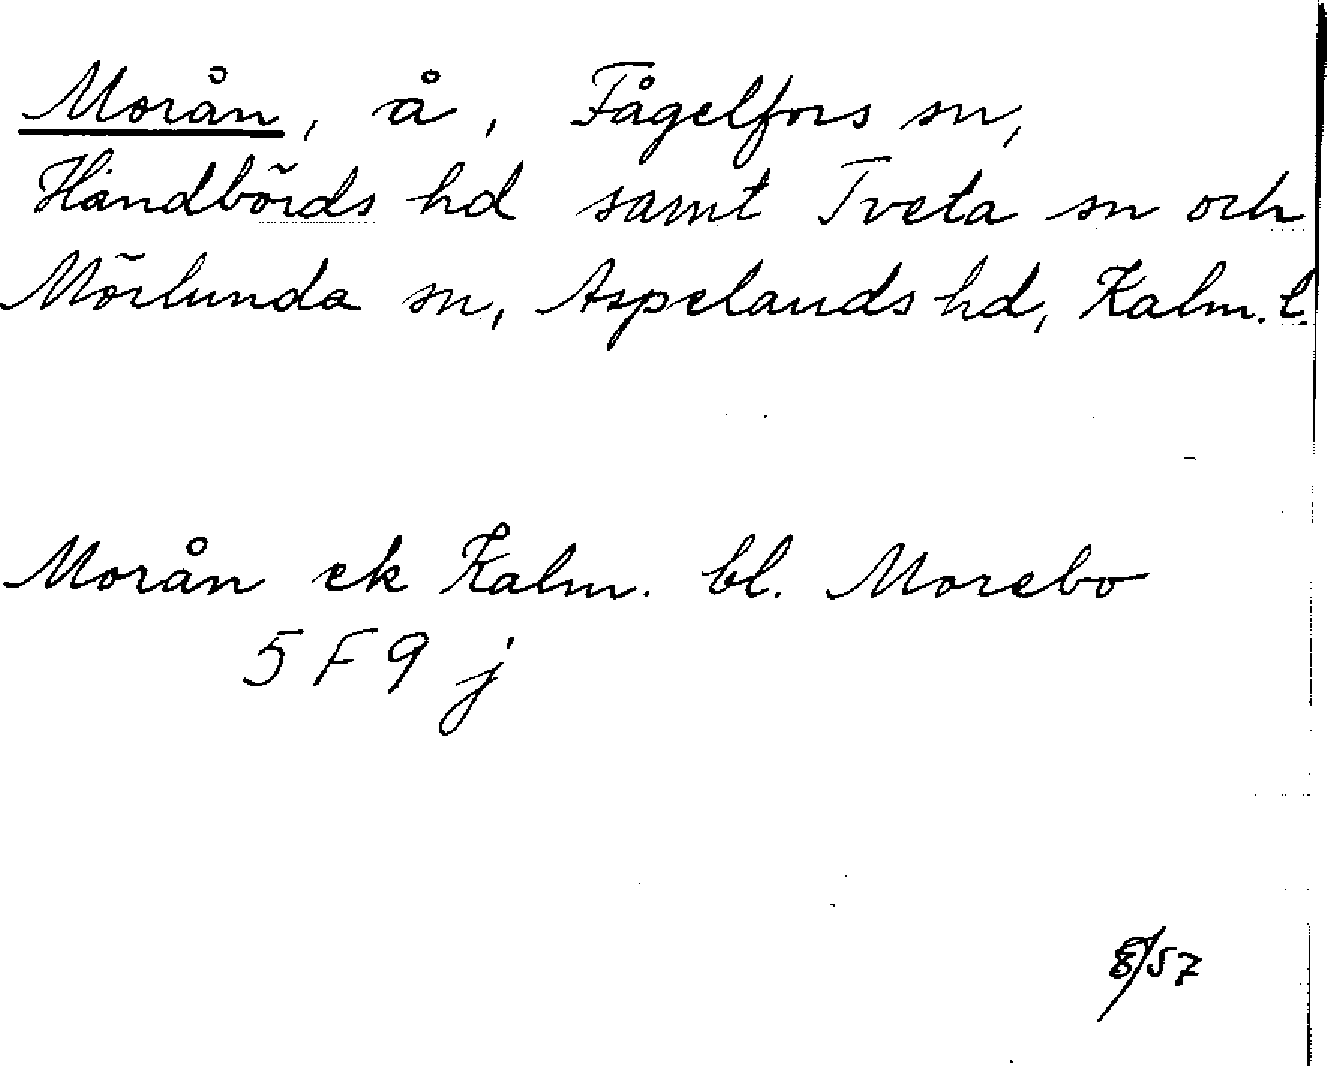 Morån, å, Fågelfors sn,
Handbörds hd samt Tveta sn och
Mörlunda sn, Aspelands hd, Kalm. l.
Morån ek Kalm. bl. Morebo
5 F 9 j
8/57